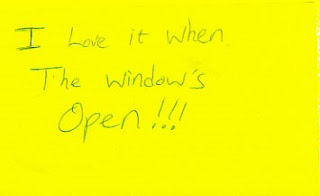 I Love it when
The window's
Open!!!